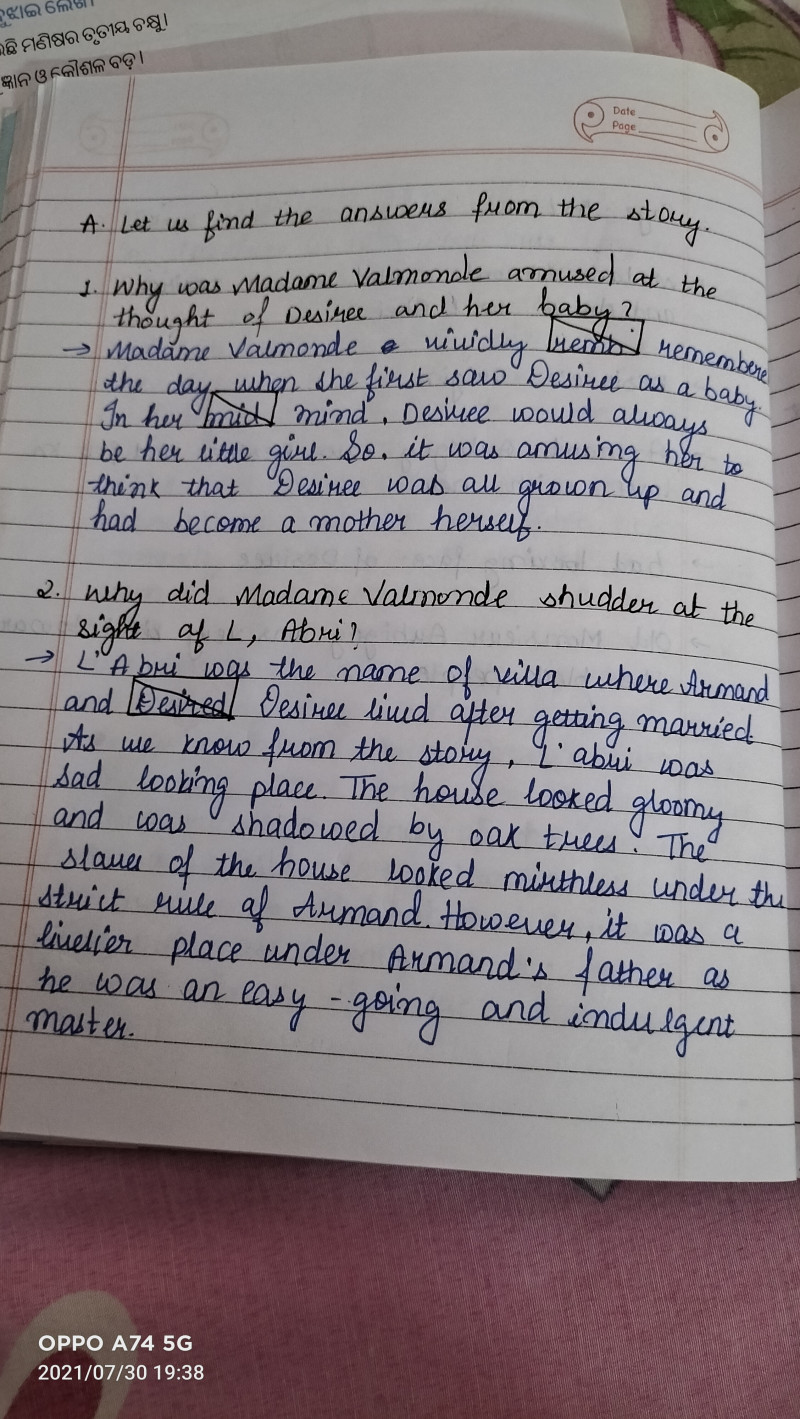 ବୁଝାଇ ଲେଖ।
ଛି ମଣିଷର ତୃତୀୟ ଚକ୍ଷୁ।
ଜ୍ଞାନ ଓ କୌଶଳ ବଡ଼।
Date
Page
A. Let us find the answers from the story.
1. Why was Madame Valmonde amused at the
thought of Desiree and her baby?
→ Madame Valmonde vividly remembere
the day when she first saw Desiree as a baby.
In her mid mind, Desiree would always
be her little girl. So, it was amusing her to
think that Desiree was all grown up and
had become a mother herself.
2. Why did Madame Valmonde shudder at the
sight of L, Abri?
→ L'Abri was the name of villa where Armand
and Desired Desiree livd after getting married
As we know from the story, L'abri was
sad looking place. The house looked gloomy
and was shadowed by oak trees. The
slaves of the house looked mirthless under the
strict rule of Armand. However, it was a
livelier place under Armand's father as
he was an easy-going and indulgent
master.
OPPO A74 5G
2021/07/30 19:38